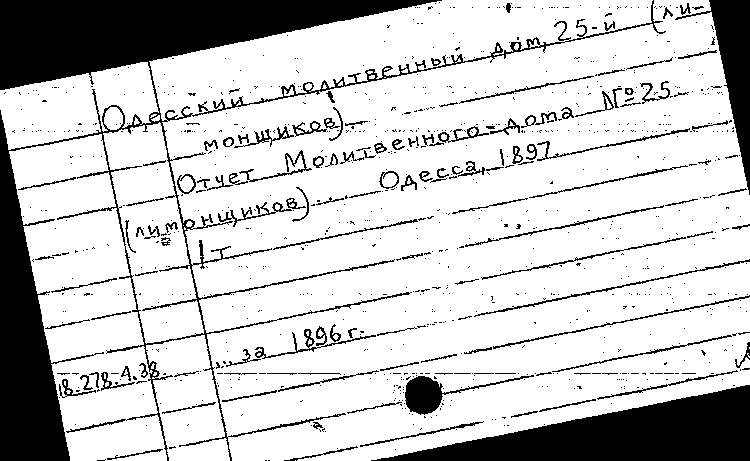 Одесский молитвенный дом, 25-й (ли-
монщиков).
Отчет Молитвенного дома № 25
(лимонщиков)... Одесса, 1897.
1 т
... за 1896 г.
18.278.4.38.